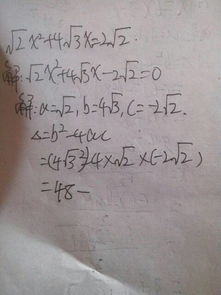 √2x²+4√3x=2√2.
解:√2x²+4√3x-2√2=0
解:a=√2,b=4√3,c=-2√2.
△=b²-4ac
=(4√3)²-4×√2×(-2√2)
=48-